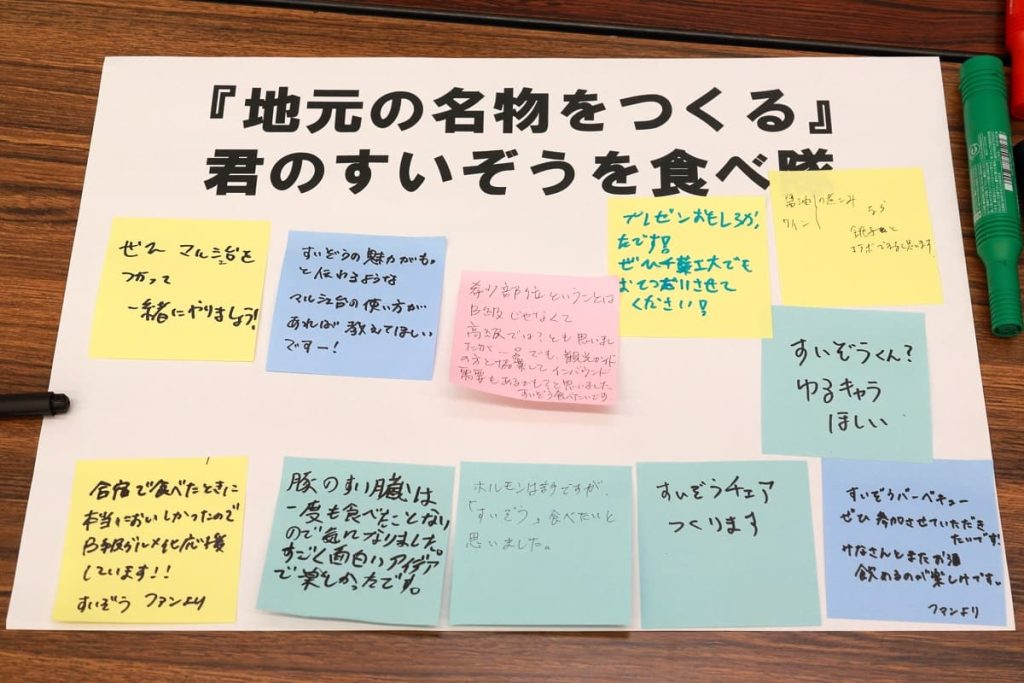 『地元の名物をつくる』
君のすいぞうを食べ隊
ぜひ マルシェ台を
つかって
一緒にやりましょう!
すいぞうの魅力がも。
と伝わるような
マルシェ台の使い方が
あれば 教えてほしい
ですー!
希少部位ということは
B級じゃなくて
高級では?とも思いまし
たが…。でも、観光ガイド
の方と協業してインバウンド
需要もあるかも?と思いました
すいぞう食べたいです
プレゼンおもしろかっ
たです!
ぜひ千葉工大でも
おてつだいさせて
ください!
醤油
ワイン
の煮こみ
なら
銚子
コラボできると思います
すいぞうくん?
ゆるキャラ
ほしい
合宿で食べたときに
本当においしかったので
B級グルメ化応援
しています!!
すいぞう ファンより
豚のすい臓は
一度も食べたことない
ので気になりました。
すごく面白いアイデア
で楽しかったです。
ホルモンは苦手ですが、
「すいぞう」食べたいと
思いました。
すいぞうチェア
つくります
すいぞうバーベキュー
ぜひ 参加させていただき
たいです!
みなさんとまたお酒
飲めるのが楽しみです。
ファンより